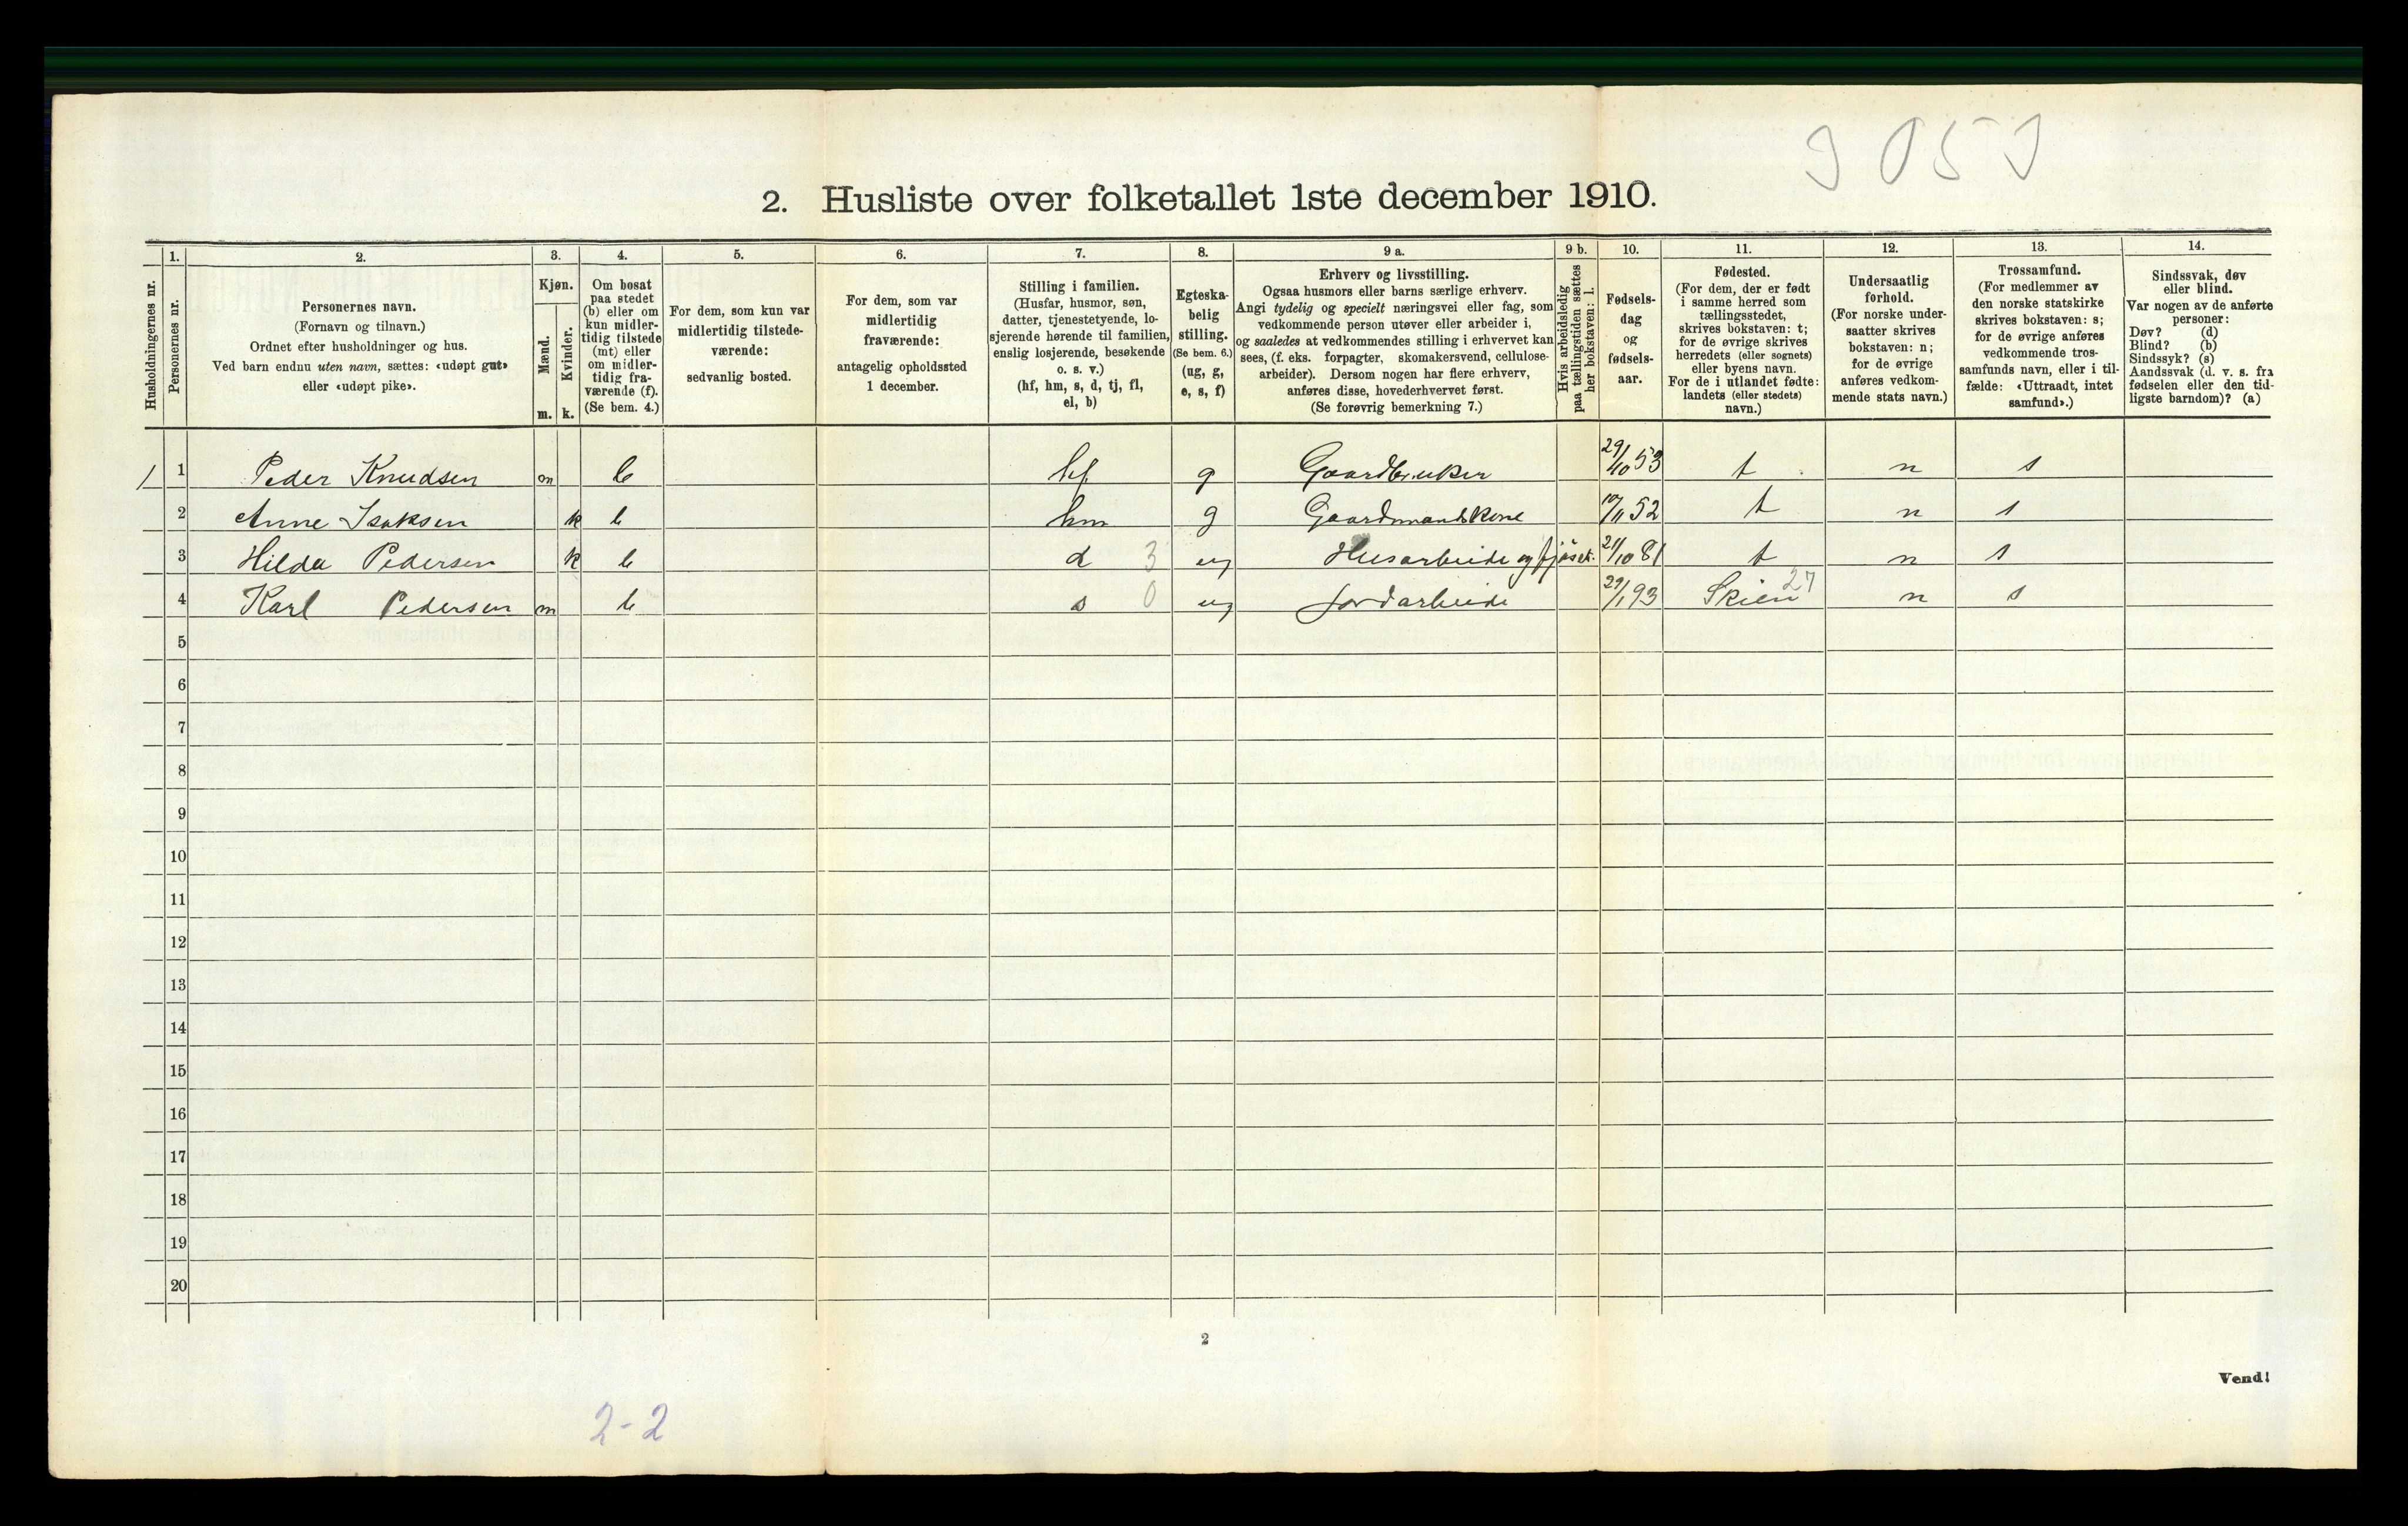 9053
2. Husliste over folketallet 1ste december 1910.
Husholdningernes nr.
1.
Personernes nr.
2.
Personernes navn.
(Fornavn og tilnavn.)
Ordnet efter husholdninger og hus.
Ved barn endnu uten navn, sættes: «udøpt gut»
eller «udøpt pike».
3.
Kjøn.
Mænd.
m.
Kvinder.
k.
4.
Om bosat
paa stedet
(b) eller om
kun midler-
tidig tilstede
(mt) eller
om midler-
tidig fra-
værende (f).
(Se bem. 4.)
5.
For dem, som kun var
midlertidig tilstede-
værende:
sedvanlig bosted.
6.
For dem, som var
midlertidig
fraværende:
antagelig opholdssted
1 december.
7.
Stilling i familien.
(Husfar, husmor, søn,
datter, tjenestetyende, lo-
sjerende hørende til familien,
enslig losjerende, besøkende
o. s. v.)
(hf, hm, s, d, tj, fl,
el, b)
8.
Egteska-
belig
stilling.
(Se bem. 6.)
(ug, g,
e, s, f)
9 a.
Erhverv og livsstilling.
Ogsaa husmors eller barns særlige erhverv.
Angi tydelig og specielt næringsvei eller fag, som
vedkommende person utøver eller arbeider i,
og saaledes at vedkommendes stilling i erhvervet kan
sees, (f. eks. forpagter, skomakersvend, cellulose-
arbeider). Dersom nogen har flere erhverv,
anføres disse, hovederhvervet først.
(Se forøvrig bemerkning 7.)
9 b.
Hvis arbeidsledig
paa tællingstiden sættes
her bokstaven: l.
10.
Fødsels-
dag
og
fødsels-
aar.
11.
Fødested.
(For dem, der er født
i samme herred som
tællingsstedet,
skrives bokstaven: t;
for de øvrige skrives
herredets (eller sognets)
eller byens navn.
For de i utlandet fødte:
landets (eller stedets)
navn.)
12.
Undersaatlig
forhold.
(For norske under-
saatter skrives
bokstaven: n;
for de øvrige
anføres vedkom-
mende stats navn.)
13.
Trossamfund.
(For medlemmer av
den norske statskirke
skrives bokstaven: s;
for de øvrige anføres
vedkommende tros-
samfunds navn, eller i til-
fælde: «Uttraadt, intet
samfund».)
14.
Sindssvak, døv
eller blind.
Var nogen av de anførte
personer:
Døv? (d)
Blind? (b)
Sindssyk? (s)
Aandssvak (d. v. s. fra
fødselen eller den tid-
ligste barndom)? (a)
1 1 Peder Knudsen m b hf g Gaardbruker 29/10 53 t n s
2 Anne Isaksen k b hm g Gaardmandskone 10/11 52 t n s
3 Hilda Pedersen k b d 3 ug Husarbeide og fjøsst. 21/10 81 t n s
4 Karl Pedersen m b s 0 ug Jordarbeide 29/1 93 Skien 27 n s
5
6
7
8
9
10
11
12
13
14
15
16
17
18
19
20
2
Vend!
2-2